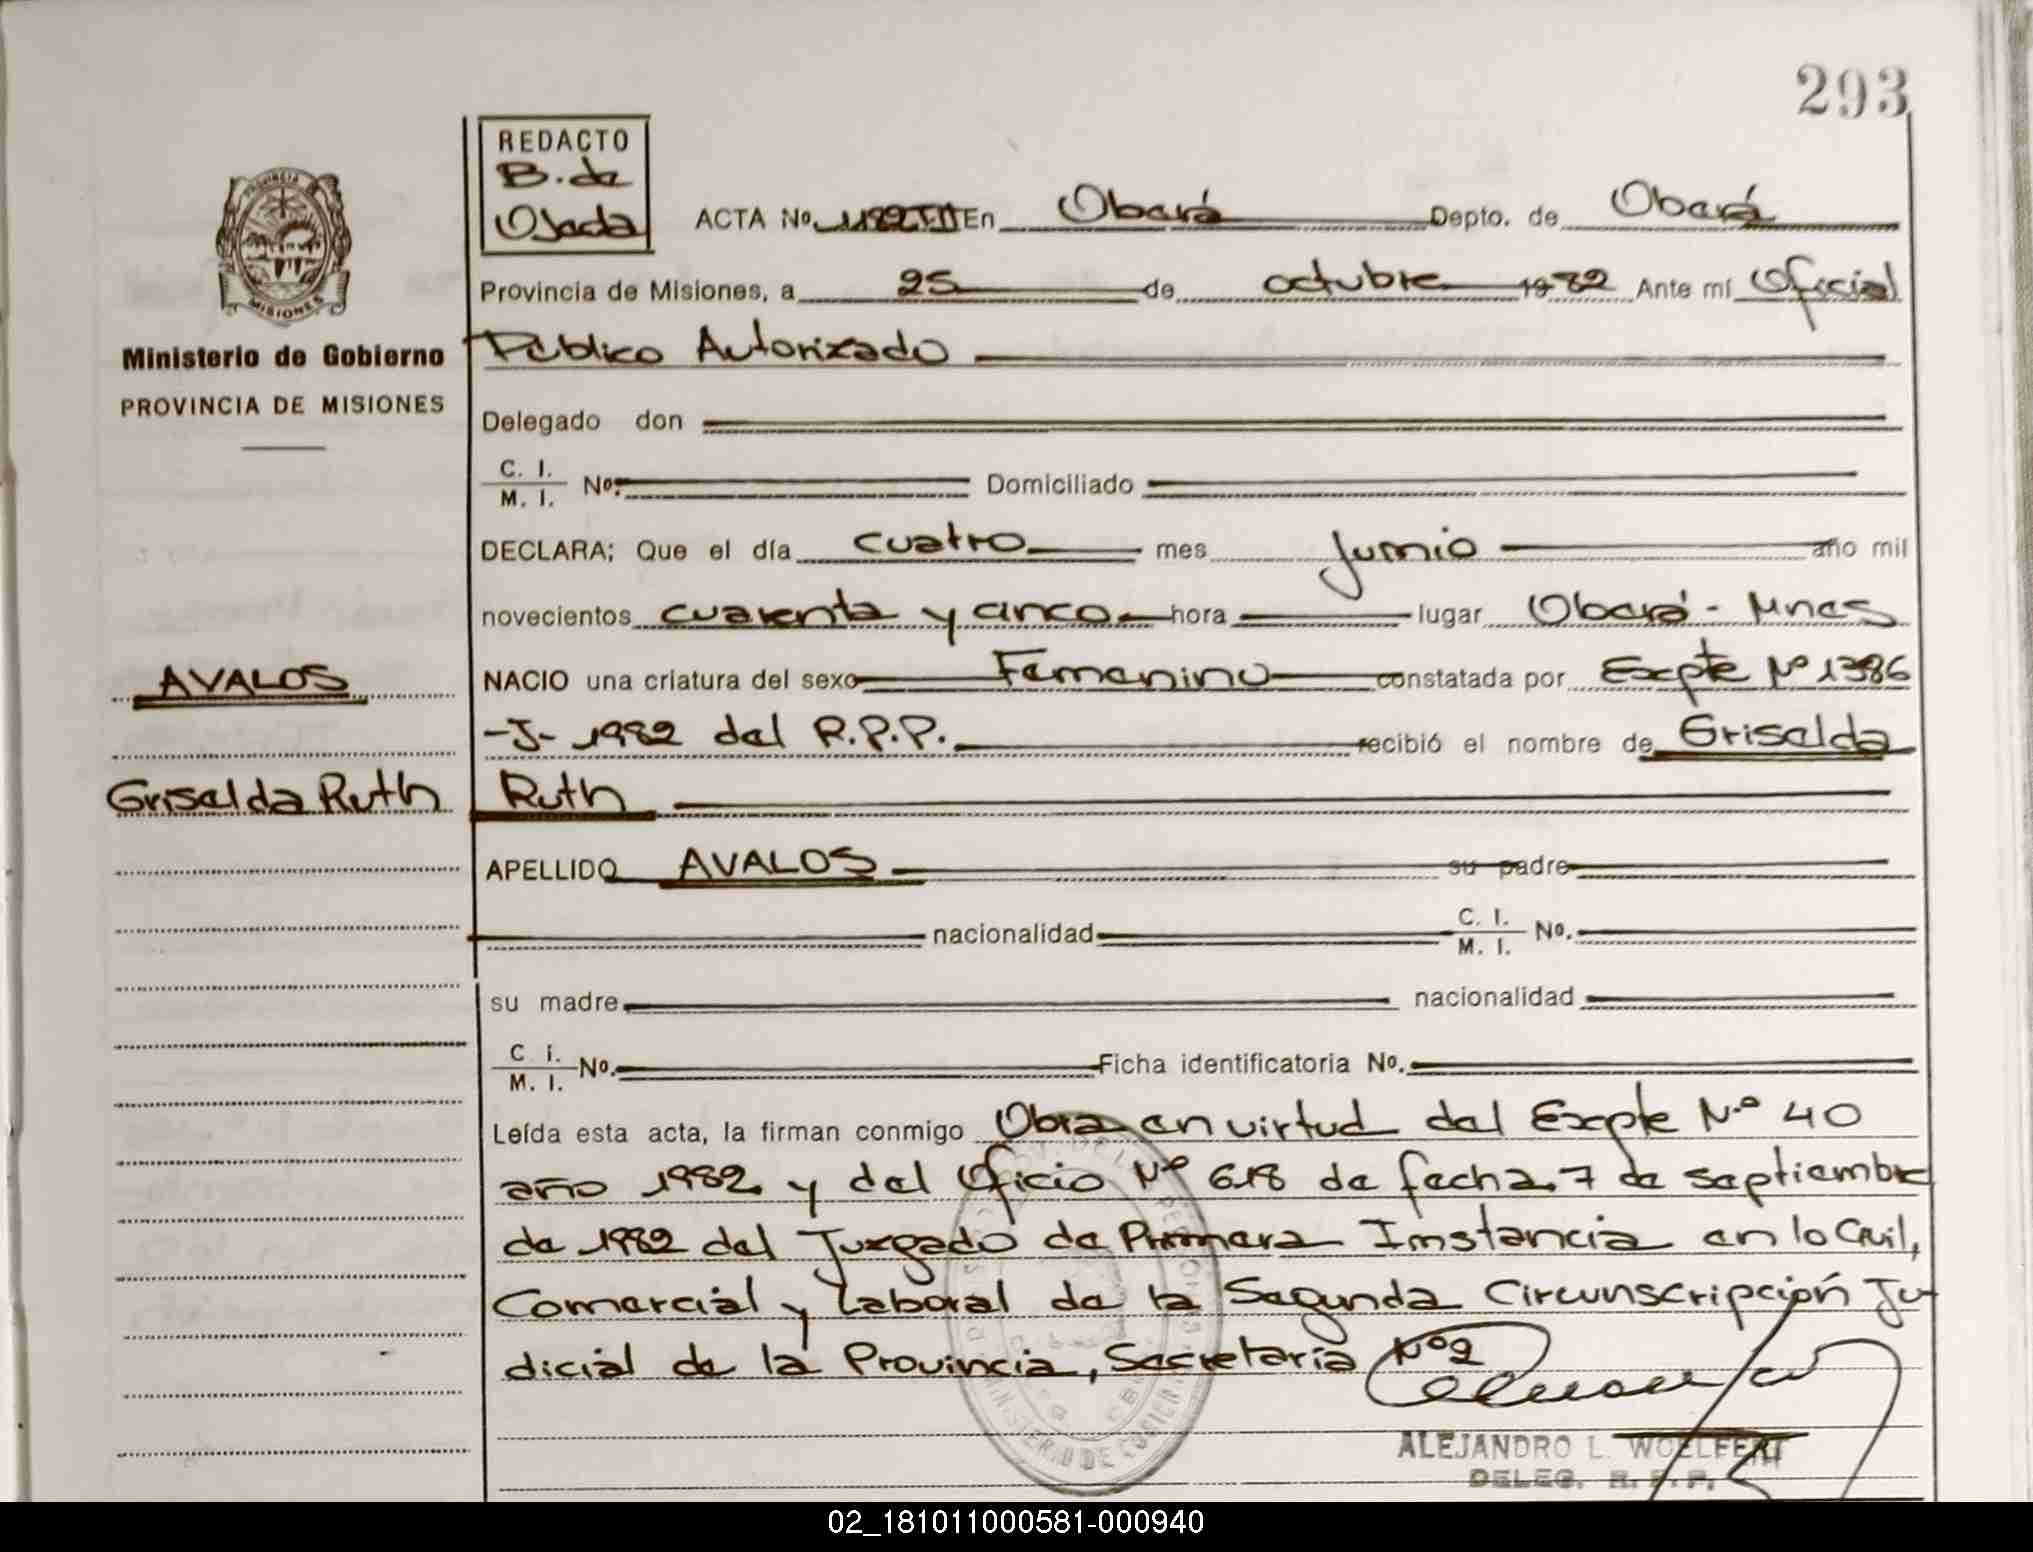 293
REDACTO
B. de
Ojeda
ACTA No. 1182 T.II En Oberá Depto. de Oberá
Provincia de Misiones, a 25 de octubre 1982 Ante mí Oficial
Público Autorizado
Delegado don
C. I.
M. I. No. Domiciliado
DECLARA; Que el día cuatro mes Junio año mil
novecientos cuarenta y cinco hora lugar Oberá - Mnes
NACIO una criatura del sexo Femenino constatada por Expte Nº 1386
-J- 1982 del R.P.P. recibió el nombre de Griselda
Ruth
APELLIDO AVALOS su padre
nacionalidad C. I. M. I. No.
su madre nacionalidad
C. I. M. I. No. Ficha identificatoria No.
Leída esta acta, la firman conmigo Obra en virtud del Expte Nº 40
año 1982 y del Oficio Nº 618 de fecha 7 de septiembre
de 1982 del Juzgado de Primera Instancia en lo Civil,
Comercial y Laboral de la Segunda Circunscripción Ju-
dicial de la Provincia, Secretaría Nº 2
ALEJANDRO L. WOELFERT
DELEG. R. P. P.
PROVINCIA
MISIONES
Ministerio de Gobierno
PROVINCIA DE MISIONES
AVALOS
Griselda Ruth
02_181011000581-000940